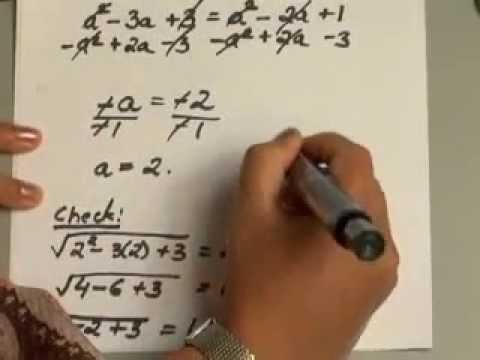 a² - 3a + 3 = a² - 2a + 1
-a² + 2a - 3 -a² + 2a - 3
-a = -2
-1 -1
a = 2.
Check:
√2² - 3(2) + 3 =
√4 - 6 + 3 =
-2 + 3 =